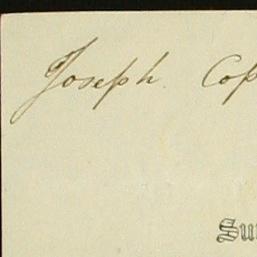 Joseph Cop
Sur